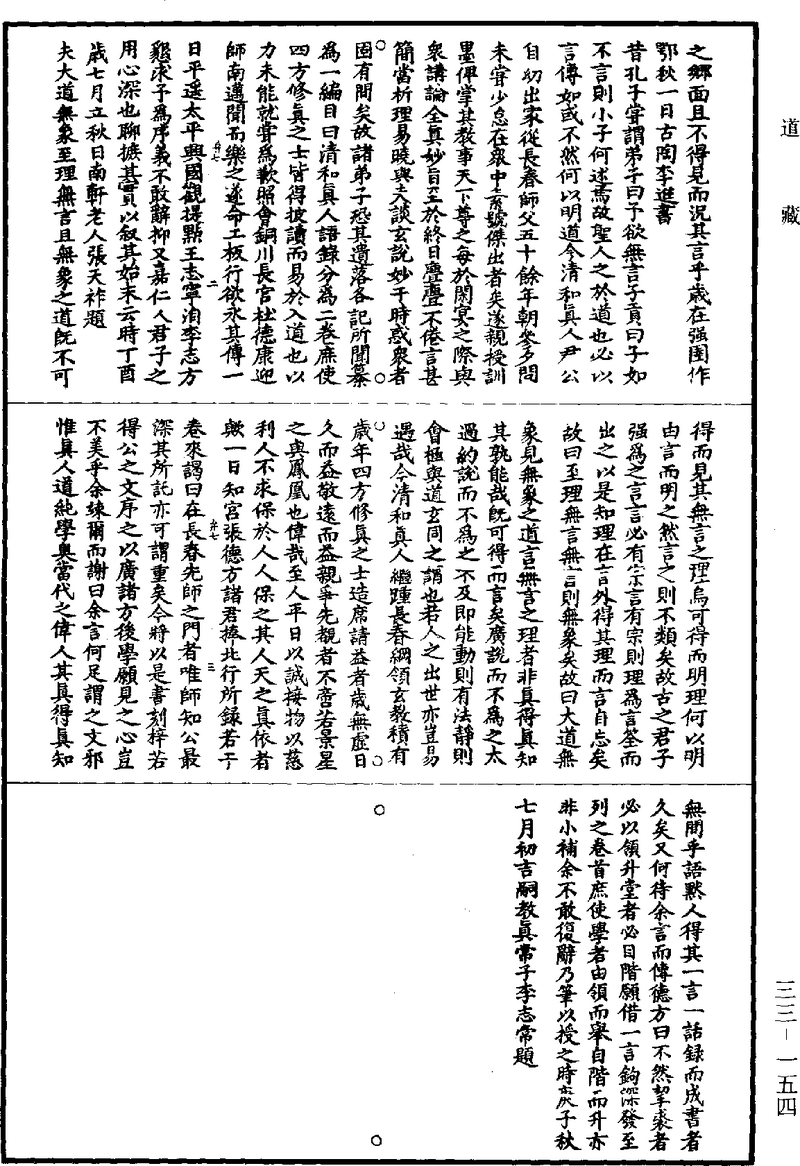 道藏
三三－一五四
之鄉面且不得見而況其言乎歲在强圉作
鄂秋一日古陶李進書
昔孔子嘗謂弟子曰予欲無言子貢曰子如
不言則小子何述焉故聖人之於道也必以
言傳如或不然何以明道今清和真人尹公
自幼出家從長春師父五十餘年朝參夕問
未嘗少怠在衆中素號傑出者矣遂親授訓
墨俾掌其教事天下尊之每於閑宴之際與
衆講論全真妙旨至於終日亹亹不倦言甚
簡當析理易曉與夫談玄說妙干時惑衆者
固有間矣故諸弟子恐其遺落各記所聞纂
為一編目曰清和真人語錄分為二卷庶使
四方修真之士皆得披讀而易於入道也以
力未能就嘗為歉照會銅川長官杜德康迎
師南邁聞而樂之遂命工板行欲永其傳一
弁七
二
日平遥太平興國觀提點王志寧洎李志方
懇求予為序義不敢辭抑又嘉仁人君子之
用心深也聊摭其實以叙其始末云時丁酉
歲七月立秋日南軒老人張天祚題
夫大道無象至理無言且無象之道既不可
得而見其無言之理烏可得而明理何以明
由言而明之然言之則不類矣故古之君子
强為之言言必有宗言有宗則理為言筌而
出之以是知理在言外得其理而言自忘矣
故曰至理無言無言則無象矣故曰大道無
象見無象之道言無言之理者非真得真知
其孰能哉既可得而言矣廣說而不為之太
過約說而不為之不及即能動則有法靜則
會極與道玄同之謂也若人之出世亦豈易
遇哉今清和真人繼踵長春綱領玄教積有
歲年四方修真之士造席請益者歲無虛日
久而益敬遠而益親爭先覩者不啻若景星
之與鳳凰也偉哉至人平日以誠接物以慈
利人不求保於人人保之其人天之真依者
歟一日知宮張德方諸君捧北行所録若干
弁七
三
卷來謁曰在長春先師之門者唯師知公最
深其所託亦可謂重矣今將以是書刻梓若
得公之文序之以廣諸方後學願見之心豈
不美乎余竦爾而謝曰余言何足謂之文邪
惟真人道純學奥當代之偉人其真得真知
無間乎語黙人得其一言一話録而成書者
久矣又何待余言而傳德方曰不然挈裘者
必以領升堂者必自階願借一言鉤深發至
列之卷首庶使學者由領而舉自階而升亦
非小補余不敢復辭乃筆以授之時庚子秋
七月初吉嗣教真常子李志常題